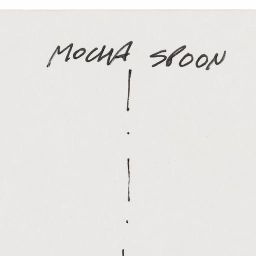 MOCHA SPOON